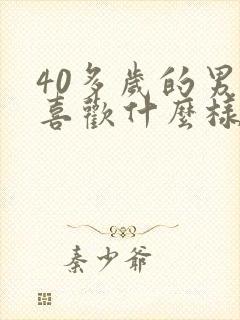 40多歲的男
喜歡什麼樣
秦少爺